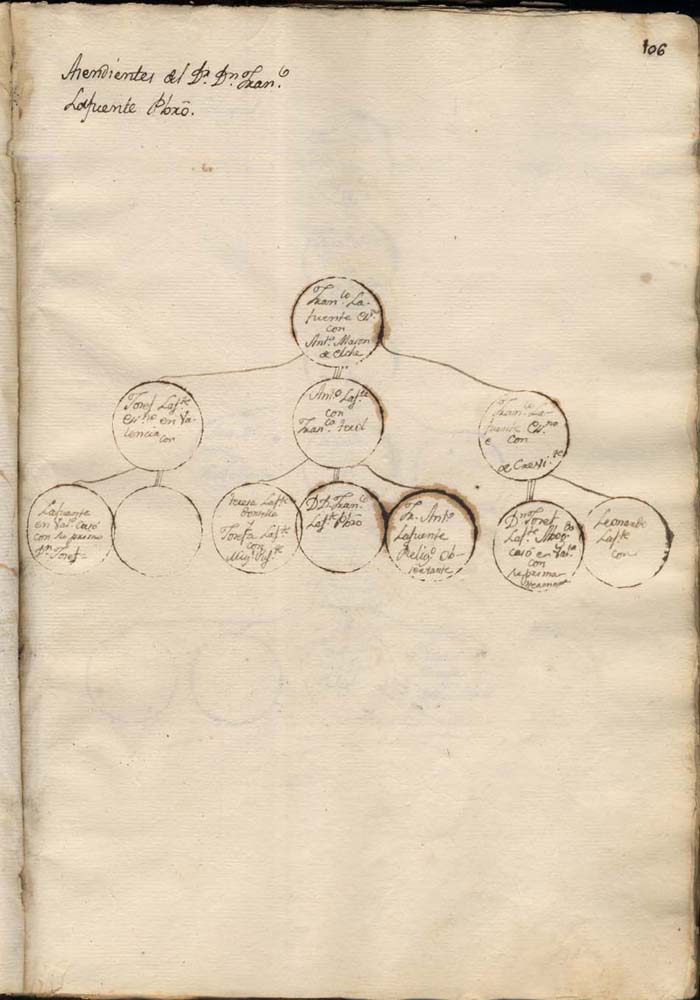 106
Asendientes del Dr. Dn. Franco.
Lafuente Pbro.
Franco. La-
fuente
con
Anta. Mason
de Elche
Josef Lafte.
Esno. en Va-
lencia con
Anto. Lafte.
con
Franca. Terol
Franco. La-
fuente Esno.
e con
de Crevite.
Lafuente
en Vala. Casó
con su primo
Dn. Josef
Teresa Lafte.
Donzella
Josefa Lafte.
con
Migl.
D. D. Franco.
Lafte. Pbro
Fr. Anto.
Lafuente
Religo. Ob-
servante
Dn. Josef
Lafte. Abogdo.
casó en Vala.
con
su prima
hermana
Leonardo
Lafte.
con